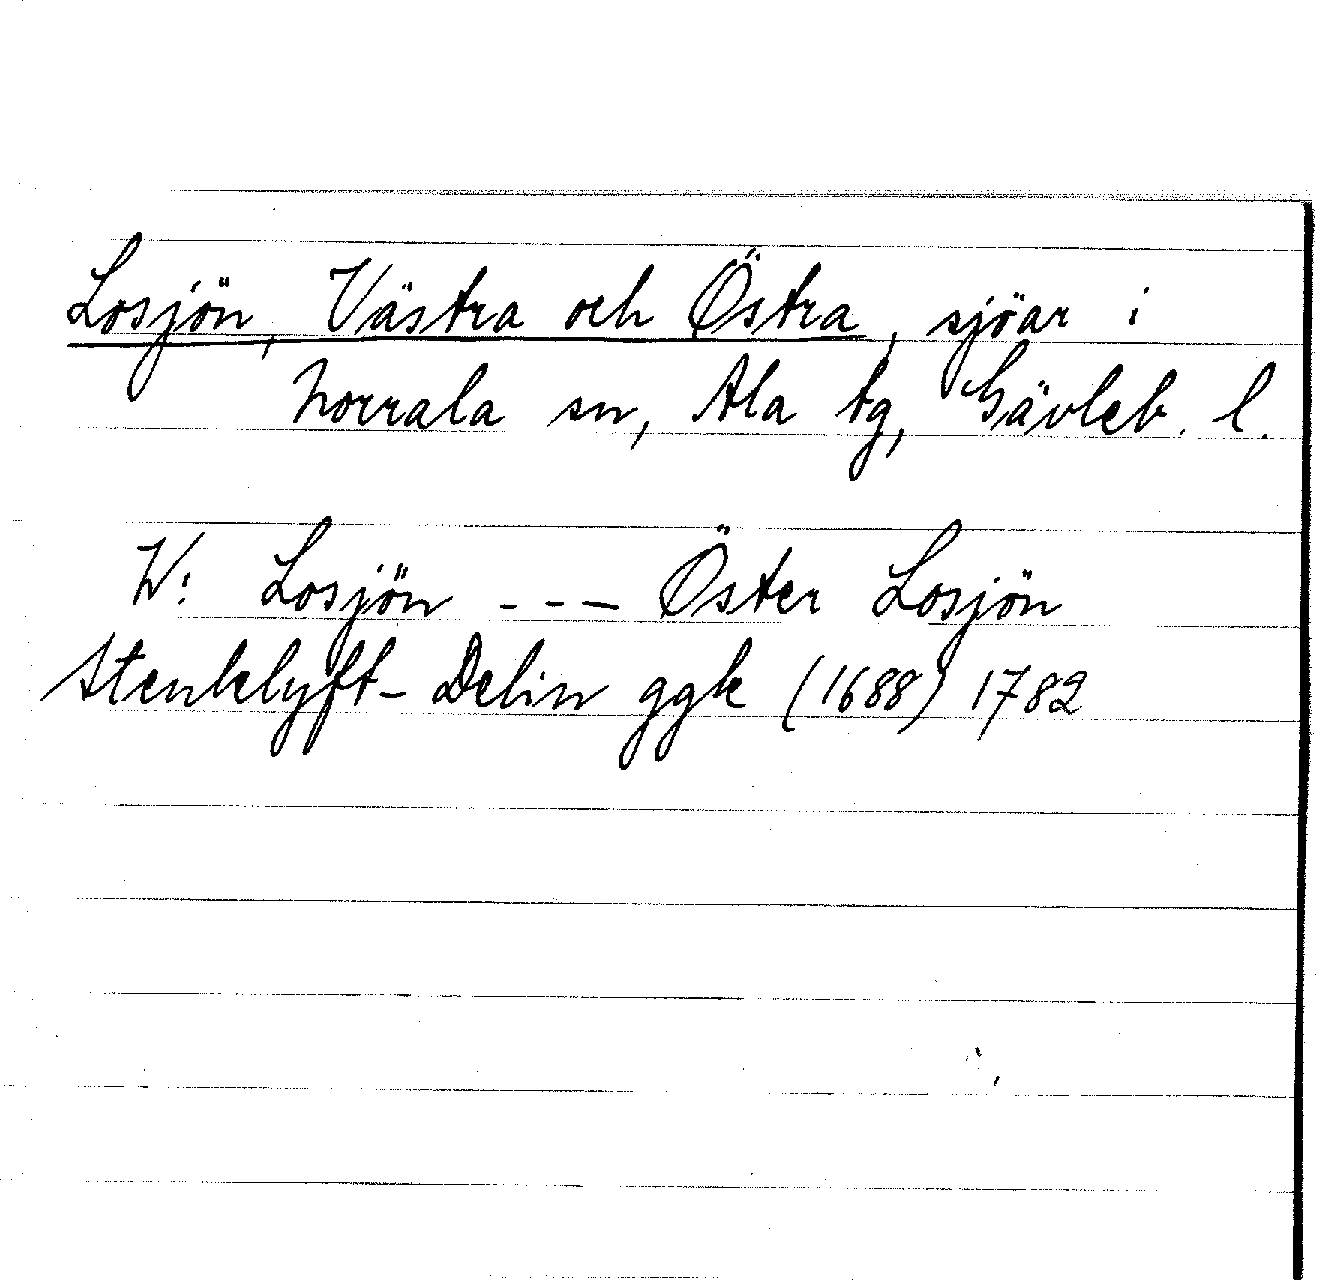 Losjön, Västra och Östra, sjöar i
Norrala sn, Ala tg, Gävleb. l.
W: Losjön - - - Öster Losjön
Stenklyft-Delin ggk (1688) 1782